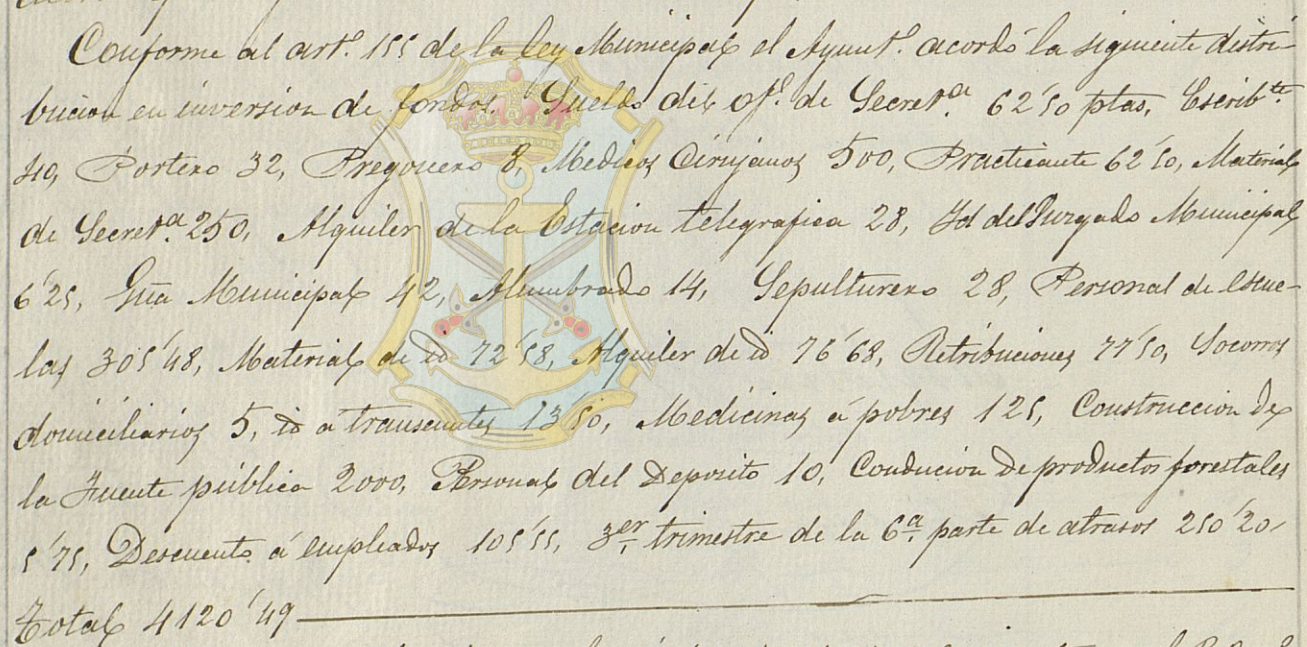 Conforme al artº. 155 de la ley Municipal el Ayuntº. acordó la siguiente distri-
bucion en inversion de fondos. Sueldo del ofl. de Secretª. 62'50 ptas, Escribte.
40, Portero 32, Pregonero 8, Medicos Cirujanos 500, Practicante 62'50, Material
de Secretª. 250, Alquiler de la Estacion telegrafica 28, Id del Juzgado Municipal
6'25, Gua Municipal 42, Alumbrado 14, Sepulturero 28, Personal de escue-
las 305'48, Material de id 72'58, Alquiler de id 76'68, Retribuciones 77'50, Socorros
domiciliarios 5, id a transeuntes 13'50, Medicinas á pobres 125, Construccion de
la Fuente pública 2000, Personal del Deposito 10, Conducion de productos forestales
5'75, Descuento á empleados 105'55, 3er. trimestre de la 6ª. parte de atrasos 250'20-
Total 4120'49